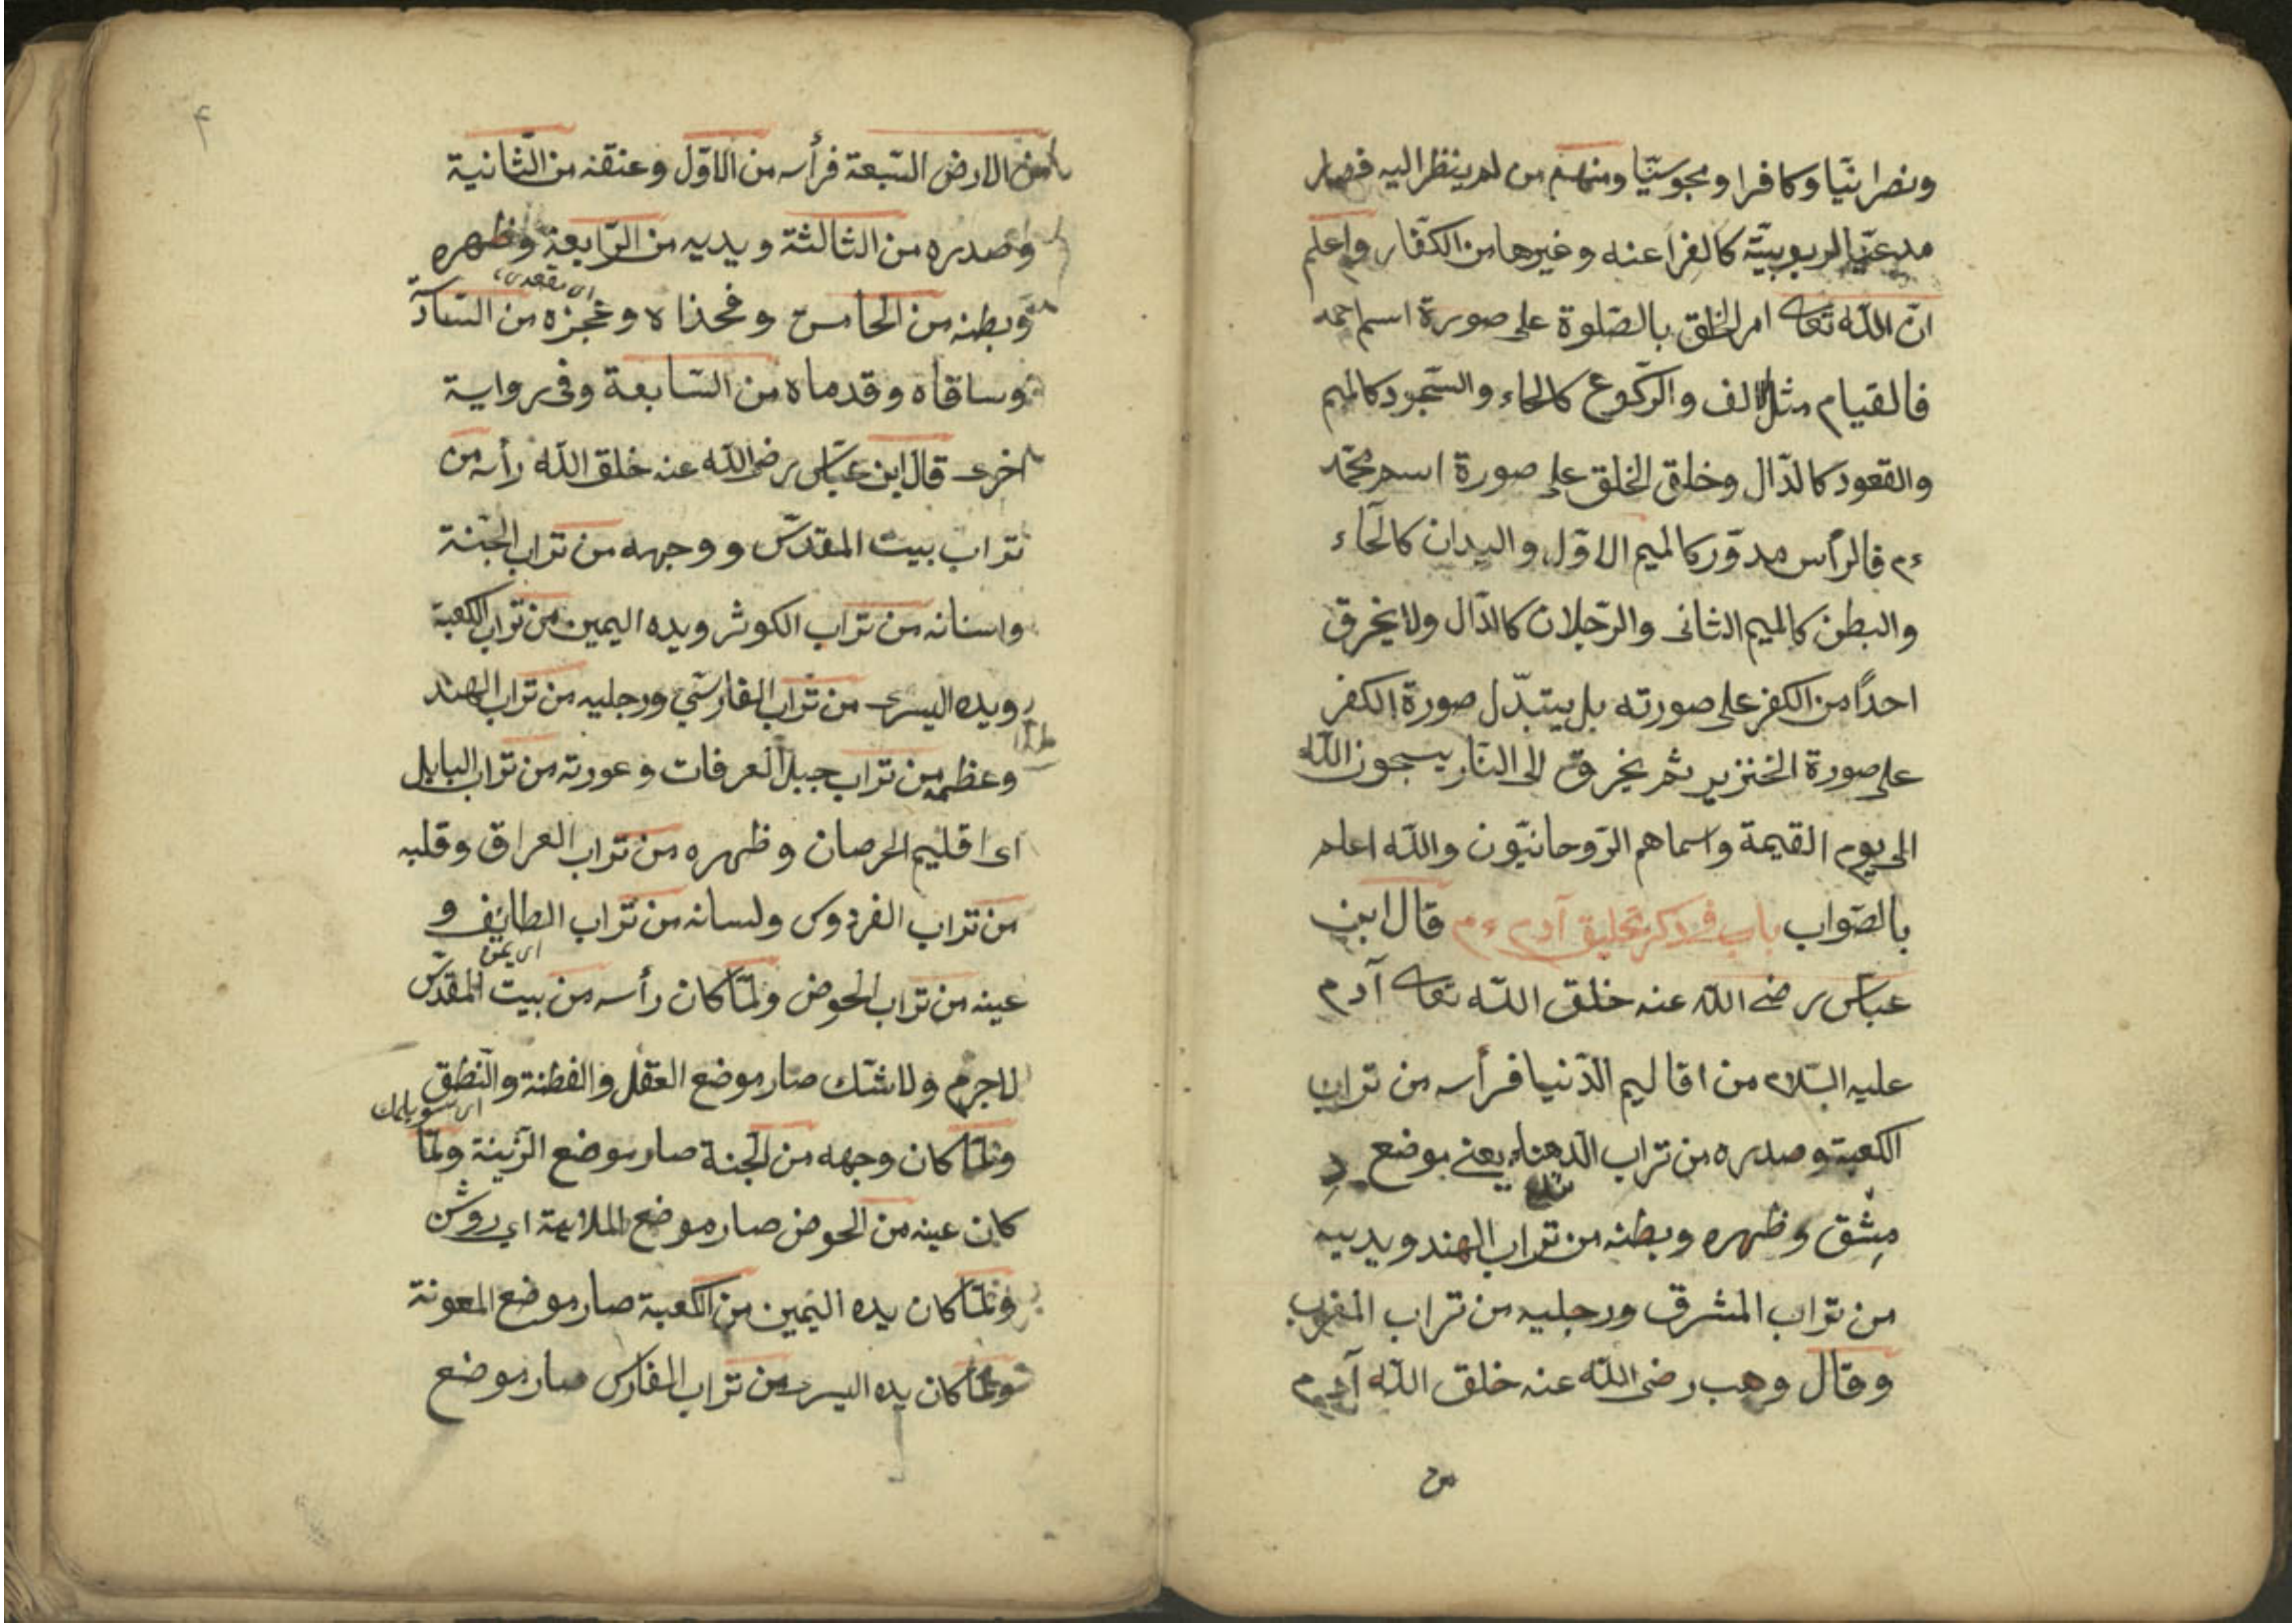 ونصرانيّا وكافرا ومجوسيّا ومنهم من لم ينظر اليه فصار
مدعيّا لربوبيّة كالفراعنه وغيرها من الكفّار واعلم
انّ اللّه تعالى امر الخلق بالصّلوة على صورة اسم احمد
فالقيام مثل الالف والرّكوع كالحاء والسّجود كالميم
والقعود كالدّال وخلق الخلق على صورة اسم محمّد
ءم فالرأس مدوّر كالميم الاوّل واليدان كالحآء
والبطن كالميم الثانى والرّجلان كالدّال ولا يخرق
احدًا من الكفر على صورته بل يتبدّل صورة الكفر
على صورة الخنزير ثم يخرق الى النّار يسبحون اللّه
الى يوم القيمة واسماهم الرّوحانيّون واللّه اعلم
بالصّواب باب فى ذكر تخليق آدم ءم قال ابن
عباس رضى اللّه عنه خلق اللّه تعالى آدم
عليه السّلام من اقاليم الدّنيا فرأسه من تراب
الكعبة وصدره من تراب الدهناء يعنى موضع د
مشق وظهره وبطنه من تراب الهند ويديه
من تراب المشرق ورجليه من تراب المغرب
وقال وهب رضى اللّه عنه خلق اللّه آدم
من
٤
من الارض السّبعة فرأسه من الاوّل وعنقه من الثّانية
وصدره من الثالثة ويديه من الرّابعة وظهره
وبطنه من الخامس وفخذاه وعجزه من السّادّ
اى مقعدى
وساقاه وقدماه من السّابعة وفى رواية
اخرى قال ابن عبّاس رضى اللّه عنه خلق اللّه رأسه من
تراب بيت المقدّس ووجهه من تراب الجنّة
واسنانه من تراب الكوثر ويده اليمين من تراب الكعبة
ويده اليسرى من تراب الفارسي ورجليه من تراب الهند
وعظمه من تراب جبل العرفات وعورته من تراب البابل
اى اقليم الحرصان وظهره من تراب العراق وقلبه
من تراب الفردوس ولسانه من تراب الطايف و
عينه من تراب الحوض ولمّا كان رأسه من بيت المقدّس
اى يمن
لاجرم ولا شّك صار موضع العقل والفطنة والنّطق
اى سويلمك
ولمّا كان وجهه من الجنة صار موضع الزّينة ولمّا
كان عينه من الحوض صار موضع الملايمة اي روشن
ولمّا كان يده اليمين من الكعبة صار موضع المعونة
ولمّا كان يده اليسرى من تراب الفارس صار موضع